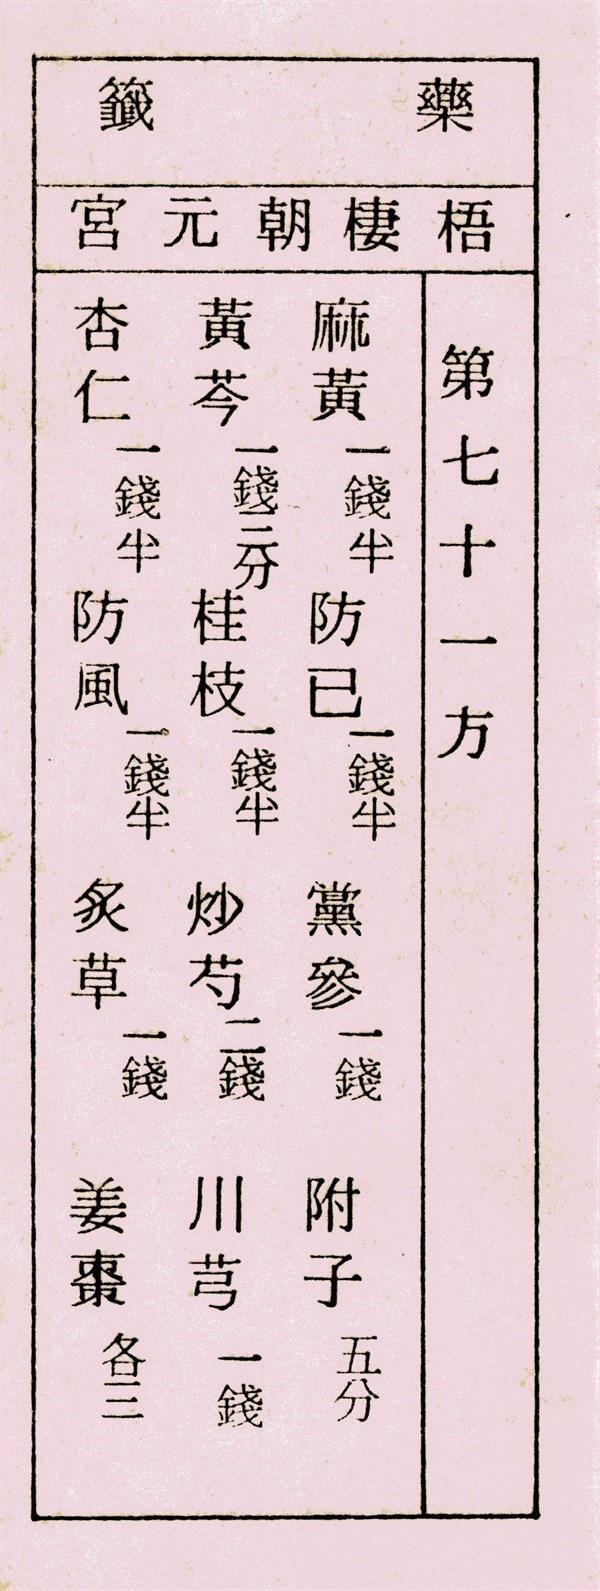 藥籤
梧棲朝元宮
第七十一方
麻黃一錢半 防已一錢半 黨參一錢 附子五分
黃芩一錢三分 桂枝一錢半 炒芍二錢 川芎一錢
杏仁一錢半 防風一錢半 炙草一錢 姜棗各三